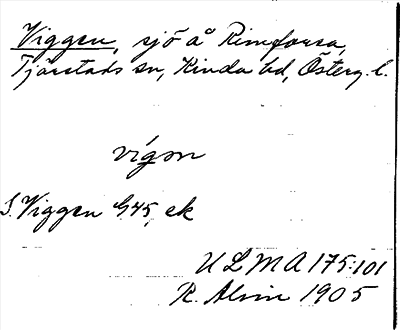 Viggen, sjö å Rimforsa,
Tjärstads sn, Kinda hd, Österg. l.
vígon
S. Viggen G45, ek
ULMA 175:101
R. Alvin 1905